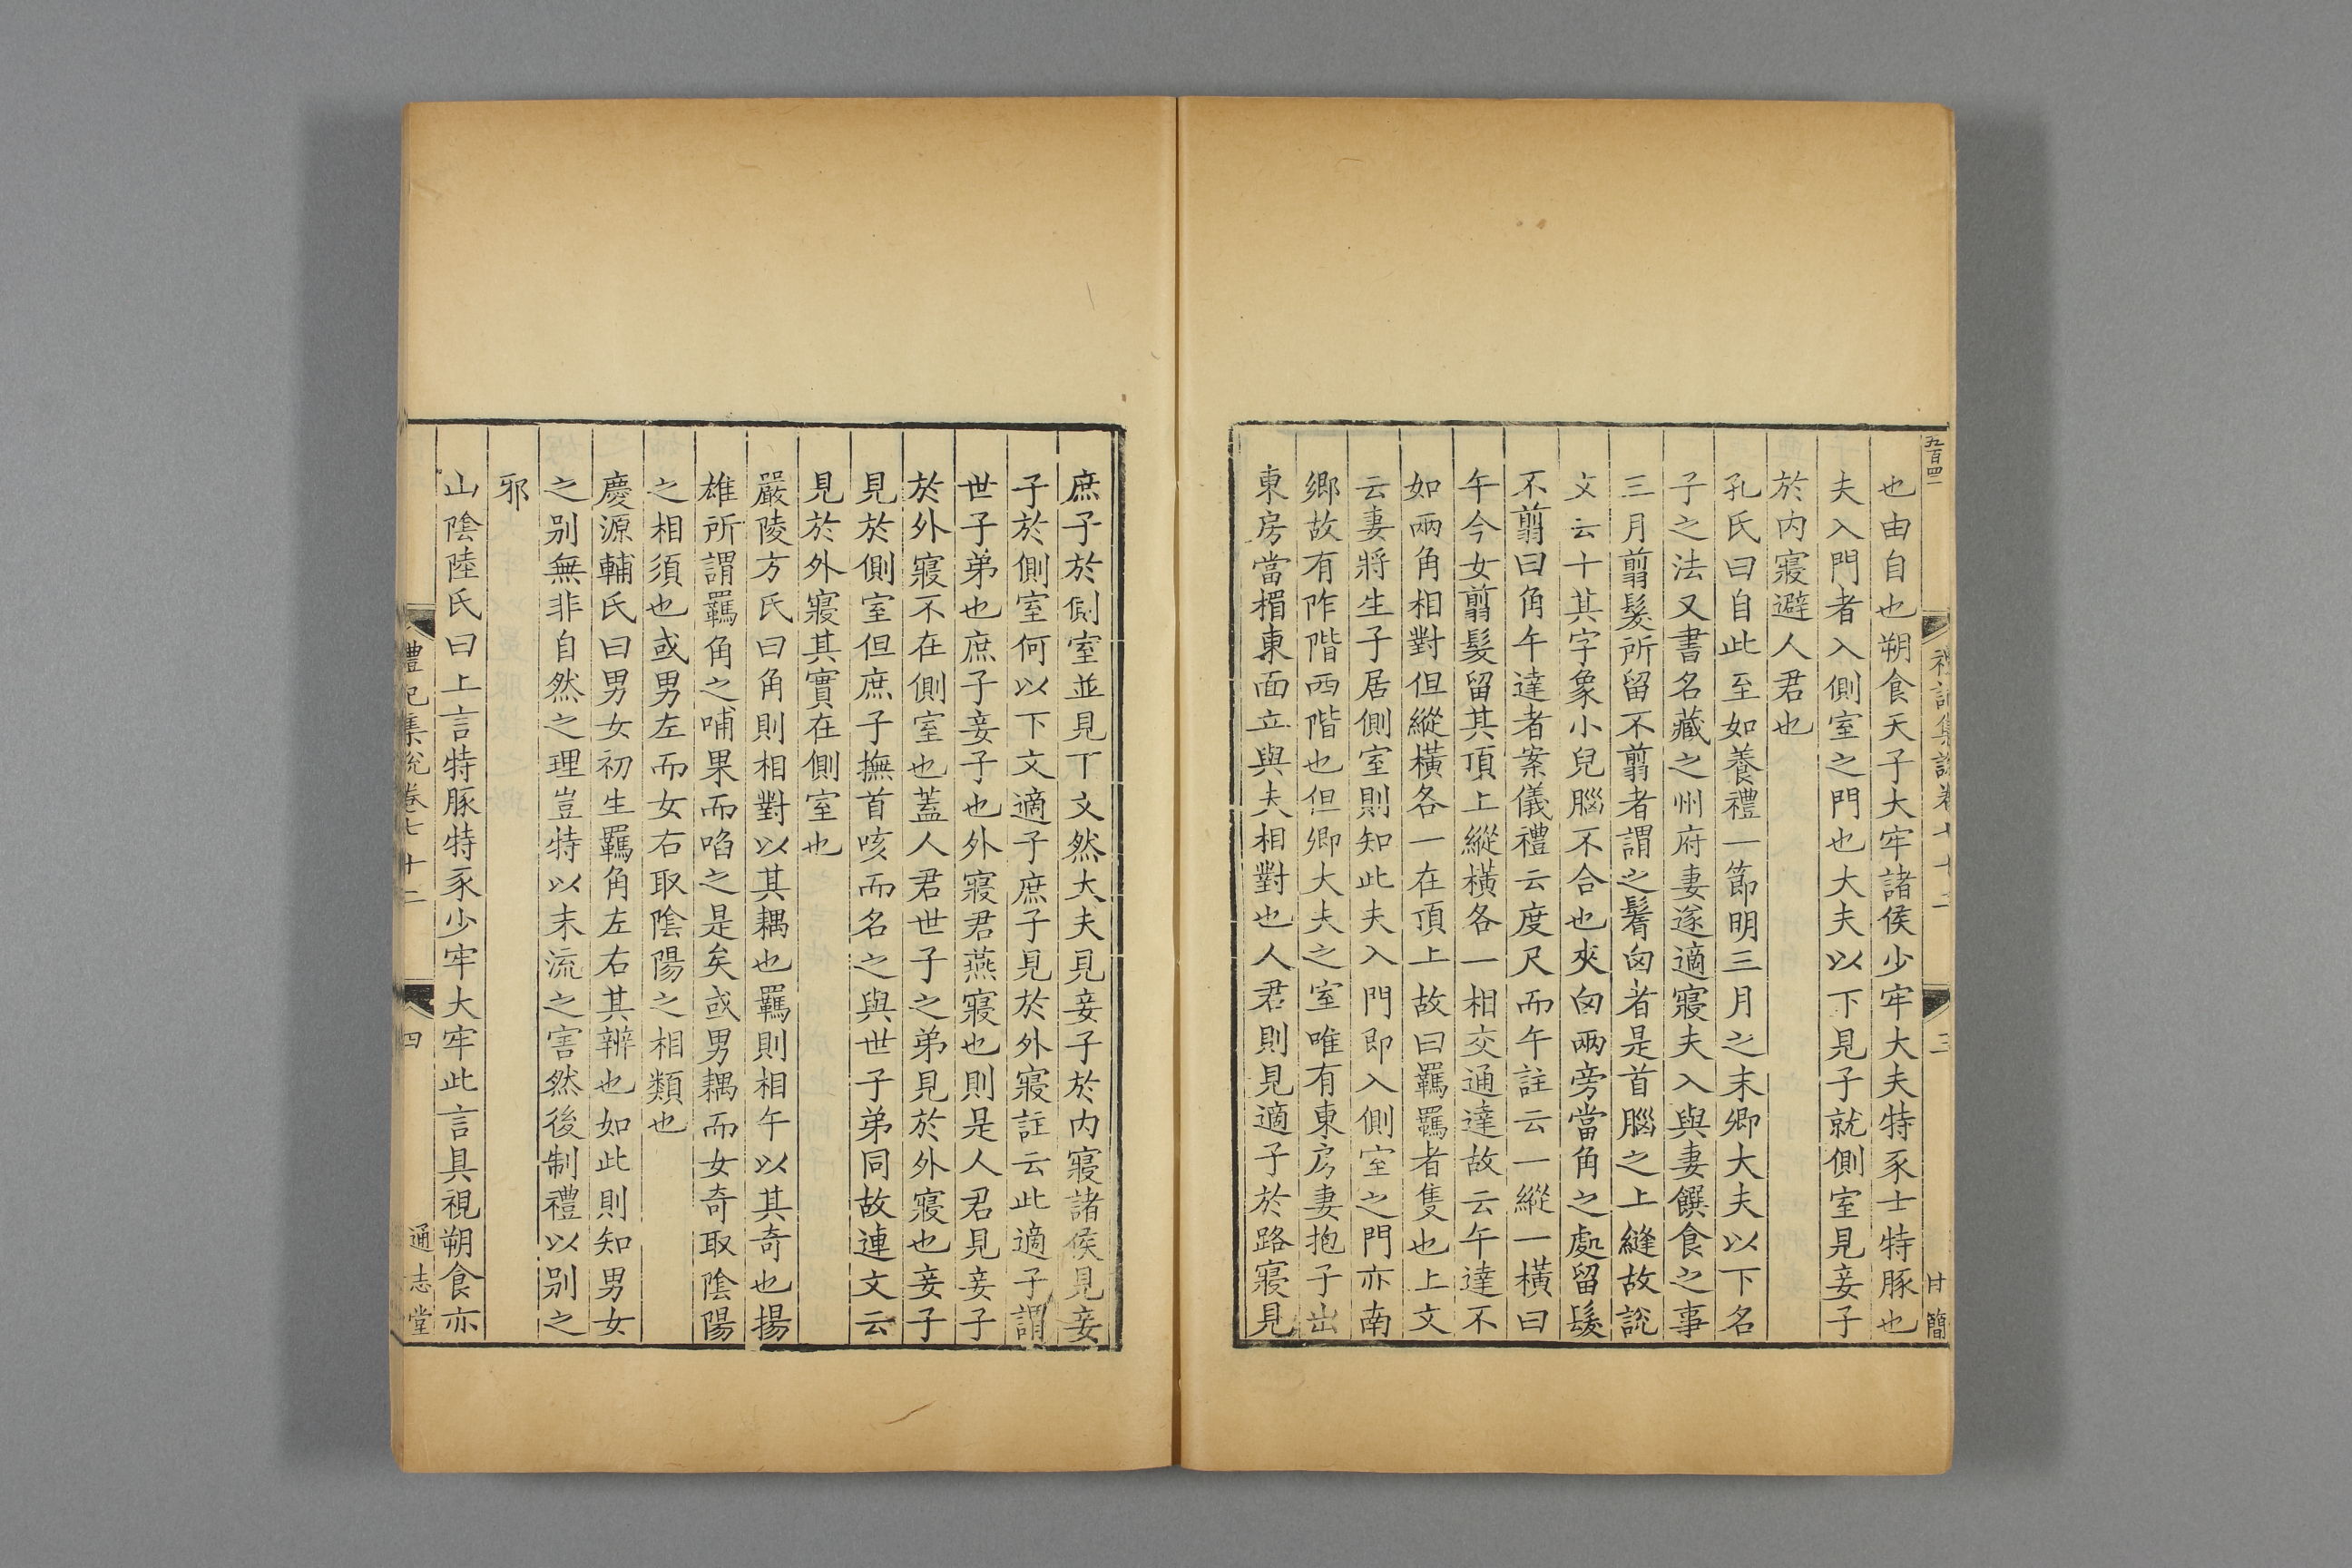 五百四二
禮記集說卷七十二
三
甘簡
也由自也朔食天子大牢諸侯少牢大夫特豕士特豚也
夫入門者入側室之門也大夫以下見子就側室見妾子
於內寢避人君也
孔氏曰自此至如養禮一節明三月之末卿大夫以下名
子之法又書名藏之州府妻遂適寢夫入與妻饌食之事
三月翦髮所留不翦者謂之鬌囟者是首腦之上縫故說
文云十其字象小兒腦不合也夾囟兩旁當角之處留髮
不翦曰角午達者案儀禮云度尺而午註云一縱一橫曰
午今女翦髮留其頂上縱橫各一相交通達故云午達不
如兩角相對但縱橫各一在頂上故曰羈羈者隻也上文
云妻將生子居側室則知此夫入門即入側室之門亦南
鄉故有阼階西階也但卿大夫之室唯有東房妻抱子出
東房當楣東面立與夫相對也人君則見適子於路寢見
庶子於側室並見下文然大夫見妾子於內寢諸侯見妾
子於側室何以下文適子庶子見於外寢註云此適子謂
世子弟也庶子妾子也外寢君燕寢也則是人君見妾子
於外寢不在側室也蓋人君世子之弟見於外寢也妾子
見於側室但庶子撫首咳而名之與世子弟同故連文云
見於外寢其實在側室也
嚴陵方氏曰角則相對以其耦也羈則相午以其奇也揚
雄所謂羈角之哺果而啗之是矣或男耦而女奇取陰陽
之相須也或男左而女右取陰陽之相類也
慶源輔氏曰男女初生羈角左右其辨也如此則知男女
之別無非自然之理豈特以末流之害然後制禮以別之
邪
山陰陸氏曰上言特豚特豕少牢大牢此言具視朔食亦
禮記集說卷七十二
四
通志堂